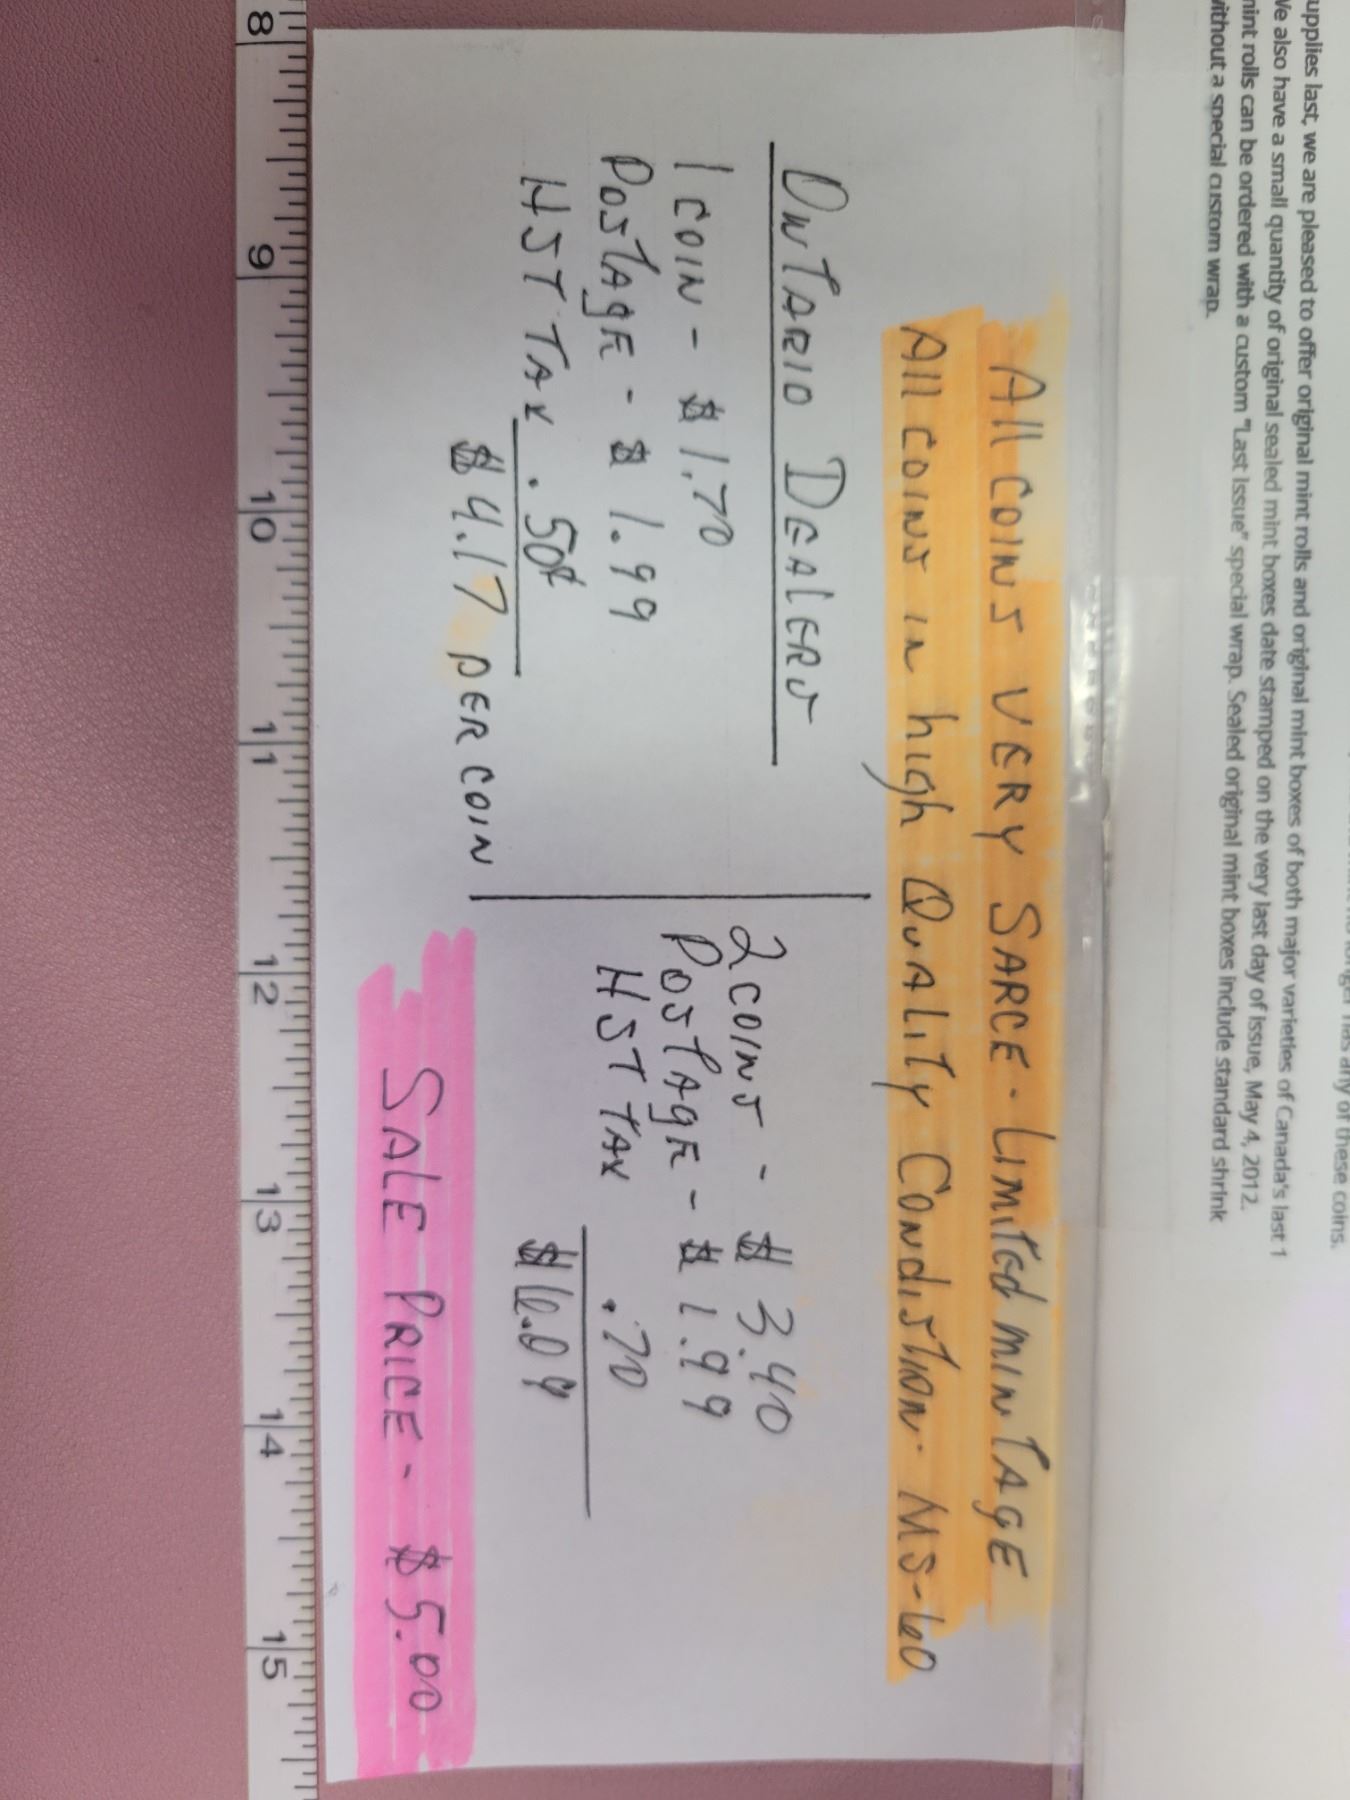 any of these coins.
upplies last, we are pleased to offer original mint rolls and original mint boxes of both major varieties of Canada's last 1
We also have a small quantity of original sealed mint boxes date stamped on the very last day of issue, May 4, 2012.
mint rolls can be ordered with a custom "Last Issue" special wrap. Sealed original mint boxes include standard shrink
without a special custom wrap.
All COINS VERY SARCE. LIMITED MINTAGE
All COINS IN high QUALITY CONDISTION. MS-60
ONTARIO DEALERS
1 COIN - $ 1.70
POSTAGE - $ 1.99
HST TAX .50¢
$4.17 PER COIN
2 COINS - $ 3.40
POSTAGE - $ 1.99
HST TAX .70
$6.09
SALE PRICE - $5.00
8 9 10 11 12 13 14 15